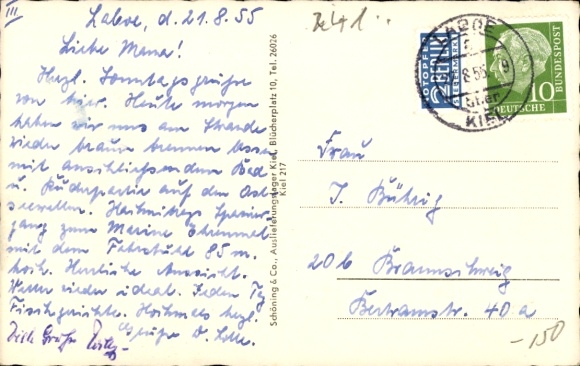 III
Laboe, d. 21.8.55
Liebe Mama!
Herzl. Sonntagsgrüße
von hier. Heute morgen
haben wir uns am Strande
wieder braun brennen lassen
mit anschließendem Bad
u. Ruderpartie auf den Ost-
seewellen. Nachmittags Spazier-
gang zum Marine Ehrenmal
mit dem Fahrstuhl 85 m.
hoch. Herrliche Aussicht.
Wetter wieder ideal. Jeden Tag
Fischgerichte. Nochmals herzl.
Grüße D. Lotte.
Viele Grüße
Schöning & Co., Auslieferungslager Kiel, Blücherplatz 10, Tel. 26026
Kiel 217
NOTOPFER
2 BERLIN
STEUERMARKE
LABOE
über
KIEL
DEUTSCHE
BUNDESPOST
10
Frau
J. Bührig
20b Braunschweig
Bertramstr. 40 a
-150